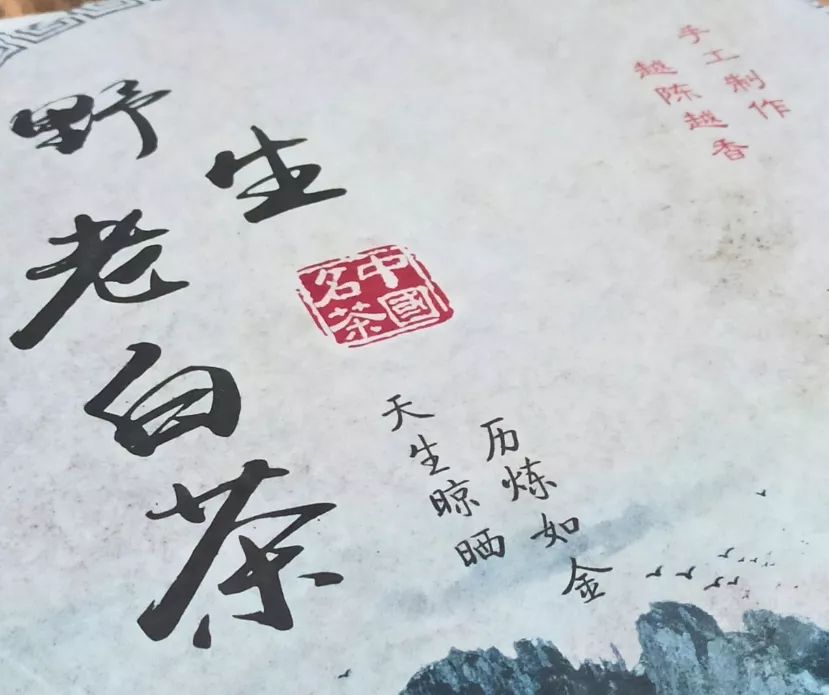 野生
老白茶
中國
名茶
手工制作
越陈越香
历炼如金
天生晾晒